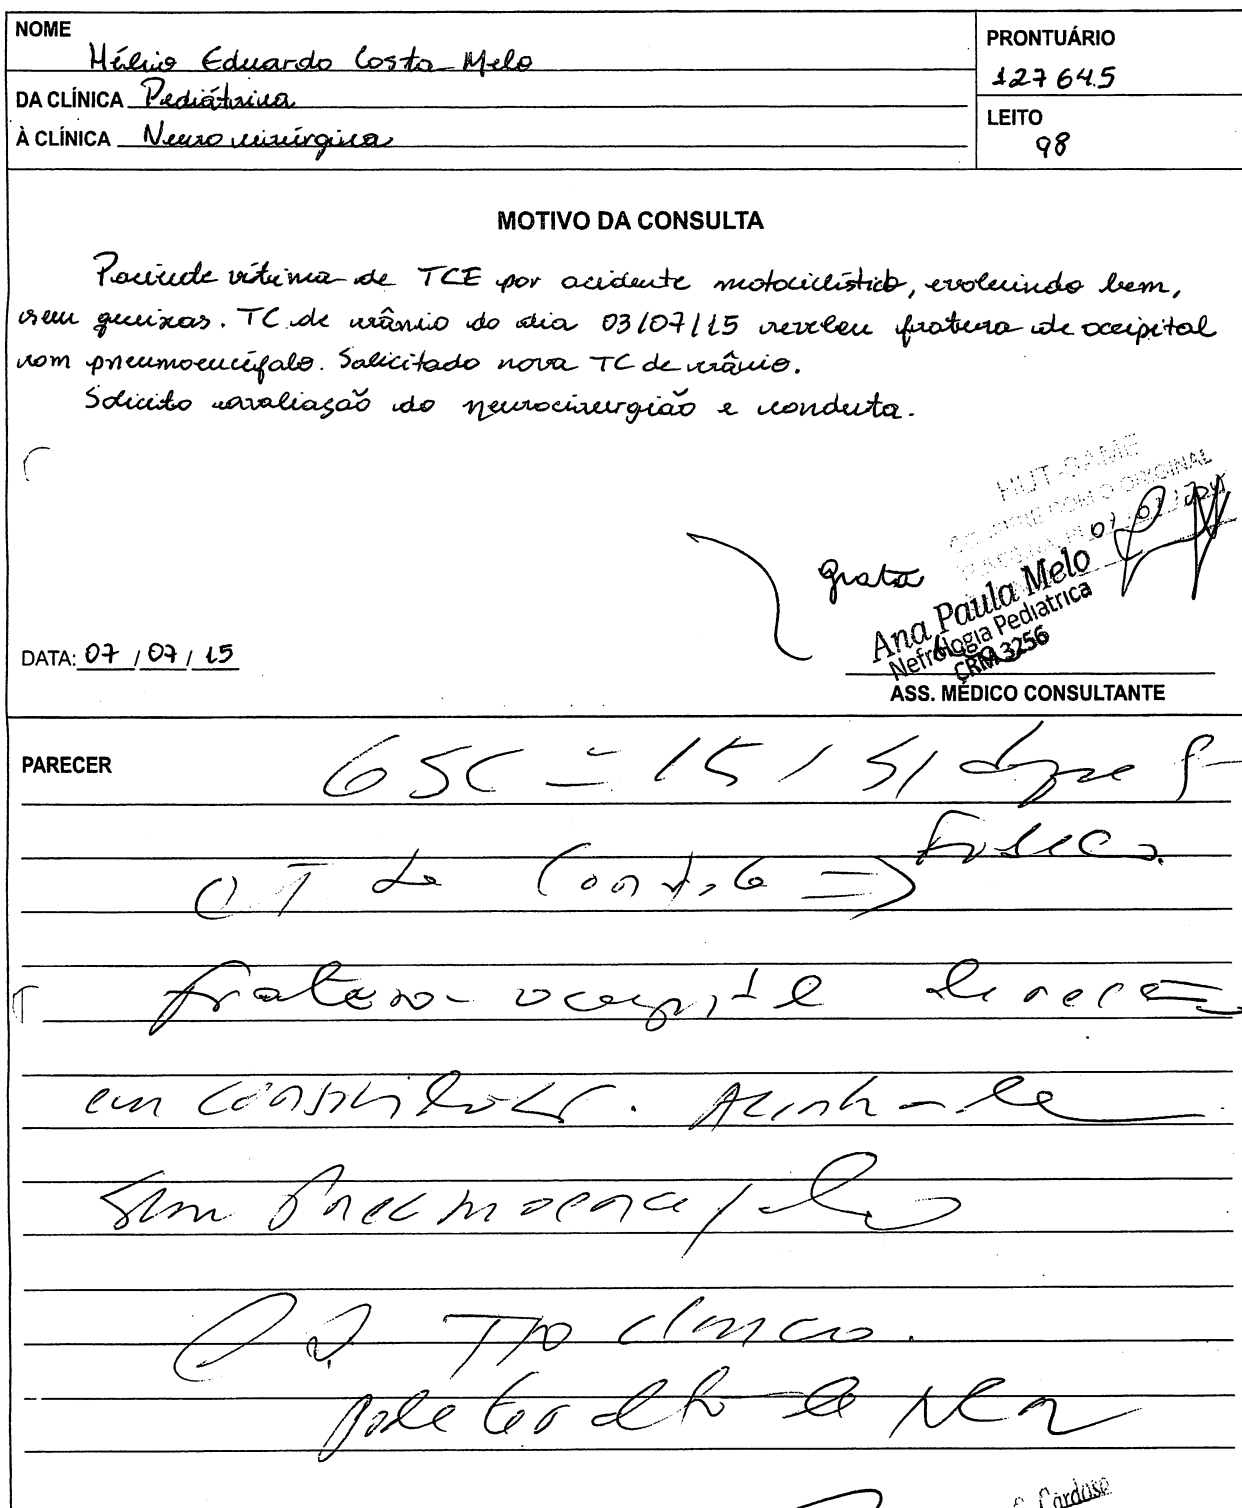 NOME
Hélio Eduardo Costa Melo
PRONTUÁRIO
127645
DA CLÍNICA Pediátrica
À CLÍNICA Neurocirúrgica
LEITO
98
MOTIVO DA CONSULTA
Paciente vítima de TCE por acidente motociclístico, evoluindo bem,
sem queixas. TC de crânio do dia 03/07/15 revelou fratura de occipital
com pneumoencéfalo. Solicitado nova TC de crânio.
Solicito avaliação do neurocirurgião e conduta.
HUT-SAME
CONFERE COM O ORIGINAL
Grata
Ana Paula Melo
Nefrologia Pediatrica
CRM 3256
DATA: 07 / 07 / 15
ASS. MÉDICO CONSULTANTE
PARECER
GSC = 15 / S/
CT de Controle =>
fratura occipital
em . Alinhada
sem pneumoencefalo
CD. TTO clinico.
pode ter alta da NCR
Cardoso